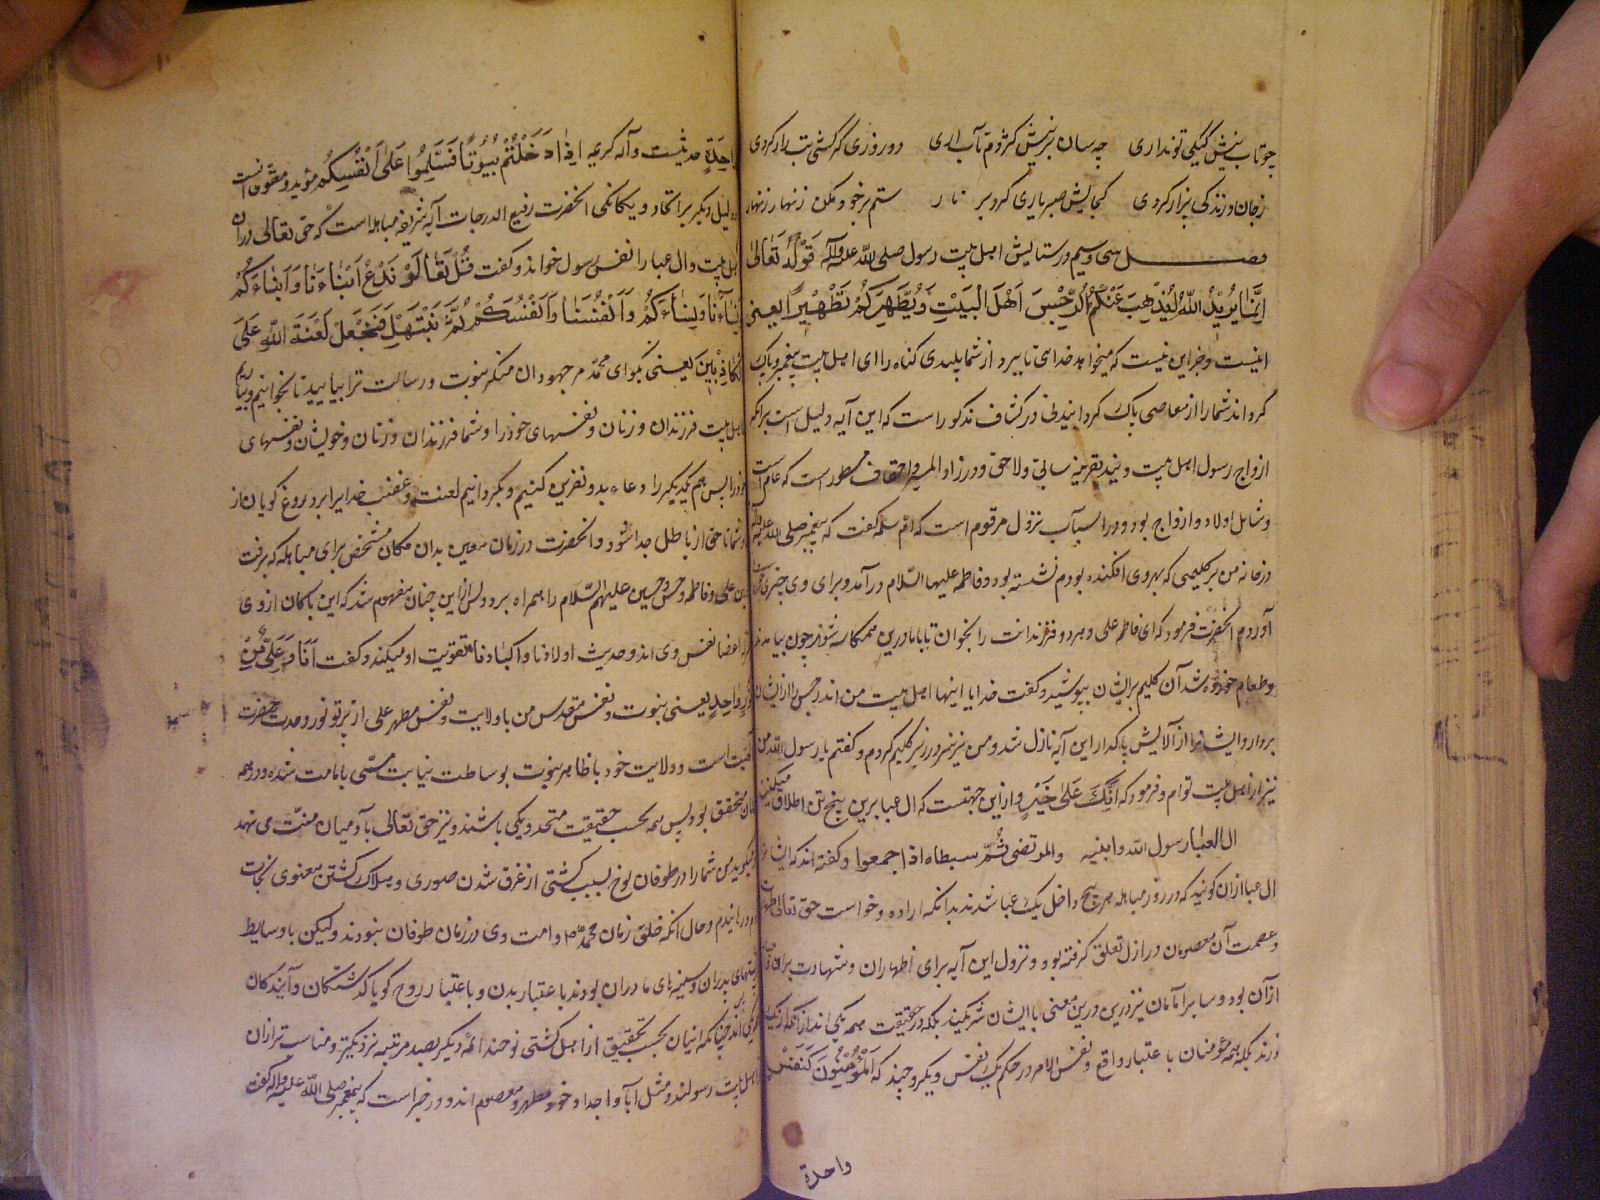 چو تاب نیش کیکی تو نداری چه سان بر نیش کژدم تاب آری دو روزی گر کسی تب‌دار کردی
ز جان و زندگی بیزار کردی کجا لیش صبر یاری کرد بر نار ستم بر خود مکن زنهار زنهار
فصل سی و سیم در ستایش اهل بیت رسول صلی الله علیه و آله قَوْلُهُ تَعَالیٰ
اِنَّمَا یُرِیْدُ اللّٰهُ لِیُذْهِبَ عَنْکُمُ الرِّجْسَ اَهْلَ الْبَیْتِ وَیُطَهِّرَکُمْ تَطْهِیْرًا یعنی
اینست و جز این نیست که میخواهد خدای تا ببرد از شما پلیدی گناه را ای اهل بیت پیغمبر و پاک
گرداند شما را از معاصی پاک گردانیدنی در کشاف مذکور است که این آیه دلیل است بر آنکه
ازواج رسول اهل بیت ویند بقرینه سابق و لاحق و در زاد المسیر و احقاف مسطور است که عام است
و شامل اولاد و ازواج بود و در اسباب نزول مرقوم است که ام سلمه گفت که پیغمبر صلی الله علیه وآله
در خانه من بر گلیمی که بر وی افکنده بودم نشسته بود و فاطمه علیها السّلام در آمد و برای وی چیزی
آورد و آنحضرت فرمود که ای فاطمه علی و هر دو فرزندانت را بخوان تا با ما درین همکاسه شوند چون بیامدند
و طعام خورده شد آن گلیم بر ایشان بپوشید و گفت خدایا اینها اهل بیت من اند رجس را از ایشان
بردار و ایشانرا از آلایش پاک دار این آیه نازل شد و من نیز سر در زیر گلیم کردم و گفتم یا رسول الله من
نیز از اهل بیت توام فرمود که اِنَّکَ عَلیٰ خَیْرٍ و ازین جهتست که آل عبا برین پنج تن اطلاق میکنند
آل العبا رسول الله و ابنته والمرتضی ثُمَّ سبطاه اذا اجمعوا و گفته‌اند که ایشان را
آل عبا ازان گویند که در روز مباهله هر پنج داخل یک عبا شدند بدانکه اراده و خواست حق تعالی بطهارت
و عصمت آن معصومان در ازل تعلق گرفته بود و نزول این آیه برای اظهار آن و شهادت بر آن
از آن بود و سایر امامان نیز درین معنی با ایشان شریکند بلکه در حقیقت همه یکی اند از آنکه از یک
نورند بلکه همه مؤمنان با عتبار واقع و نفس الامر در حکم یک نفس و یکروحند که اَلْمُؤْمِنُوْنَ کَنَفْسٍ
واحدة
وَاحِدَةٍ حدیثست و آیه کریمه اِذَا دَخَلْتُمْ بُیُوْتًا فَسَلِّمُوا عَلیٰ اَنْفُسِکُمْ مؤید و مقوی آنست
و دلیل دیگر بر اتحاد و یگانگی آنحضرت رفیع الدرجات آیه شریفه مباهله است که حق تعالی در آن
اهل بیت و آل عبا را نفس رسول خواند و گفت قُلْ تَعَالَوْ نَدْعُ اَبْنَاءَنَا وَاَبْنَاءَکُمْ
وَنِسَاءَنَا وَنِسَاءَکُمْ وَاَنْفُسَنَا وَاَنْفُسَکُمْ ثُمَّ نَبْتَهِلْ فَنَجْعَلْ لَعْنَةَ اللّٰهِ عَلَی
الْکَاذِبِیْنَ یعنی بگو ای محمد مر جهودان منکر نبوت و رسالت ترا بیایید تا بخوانیم و بیاریم
اهل بیت فرزندان و زنان و نفسهای خود را و شما فرزندان و زنان و خویشان و نفسهای
خود را پس هم یکدیگر را دعاء بد و نفرین کنیم و بگردانیم لعنت و غضب خدایرا بر دروغ گویان از
و شما تا حق از باطل جدا شود و آنحضرت در زمان معین بدان مکان مشخص برای مباهله که برفت
همین علی و فاطمه و حسن و حسین علیهم السّلام را همراه برد و پس ازین چنان مفهوم شد که این پاکان از وی
و از اعضا نفس وی اند و حدیث اولادنا و اکبادنا تقویت او میکند و گفت اَنَا وَعَلِیٌّ مِّنْ
نُوْرٍ وَاحِدٍ یعنی نبوت و نفس مقدس من با ولایت و نفس مطهر علی از پرتو نور وحدت حضرت
است و ولایت خود با ظاهر نبوت بوساطت نیابت مسمی بامامت شده و در همه
متحقق بود پس همه بحسب حقیقت متحد و یکی باشند و نیز حق تعالی با آدمیان منّت می نهد
میگوید من شما را در طوفان نوح بسبب کشتی از غرق شدن صوری و هلاک گشتن معنوی نجات
دادم و رهانیدم و حال آنکه خلق زمان محمد و امت وی در زمان طوفان نبودند و لیکن با وسایط
پشتهای پدران و سینهای مادران بودند با عتبار بدن و با عتبار روح گویا گذشتگان و آیندگان
یکی اند چنانکه ایشان بحسب تحقیق از اهل کشتی نوحند ائمه دیگر بصد مرتبه نزدیکتر و مناسب تر از آن
اهل بیت رسولند و مثل آبا و اجداد خود مطهر و معصوم اند و در خبر است که پیغمبر صلی الله علیه و اله گفت